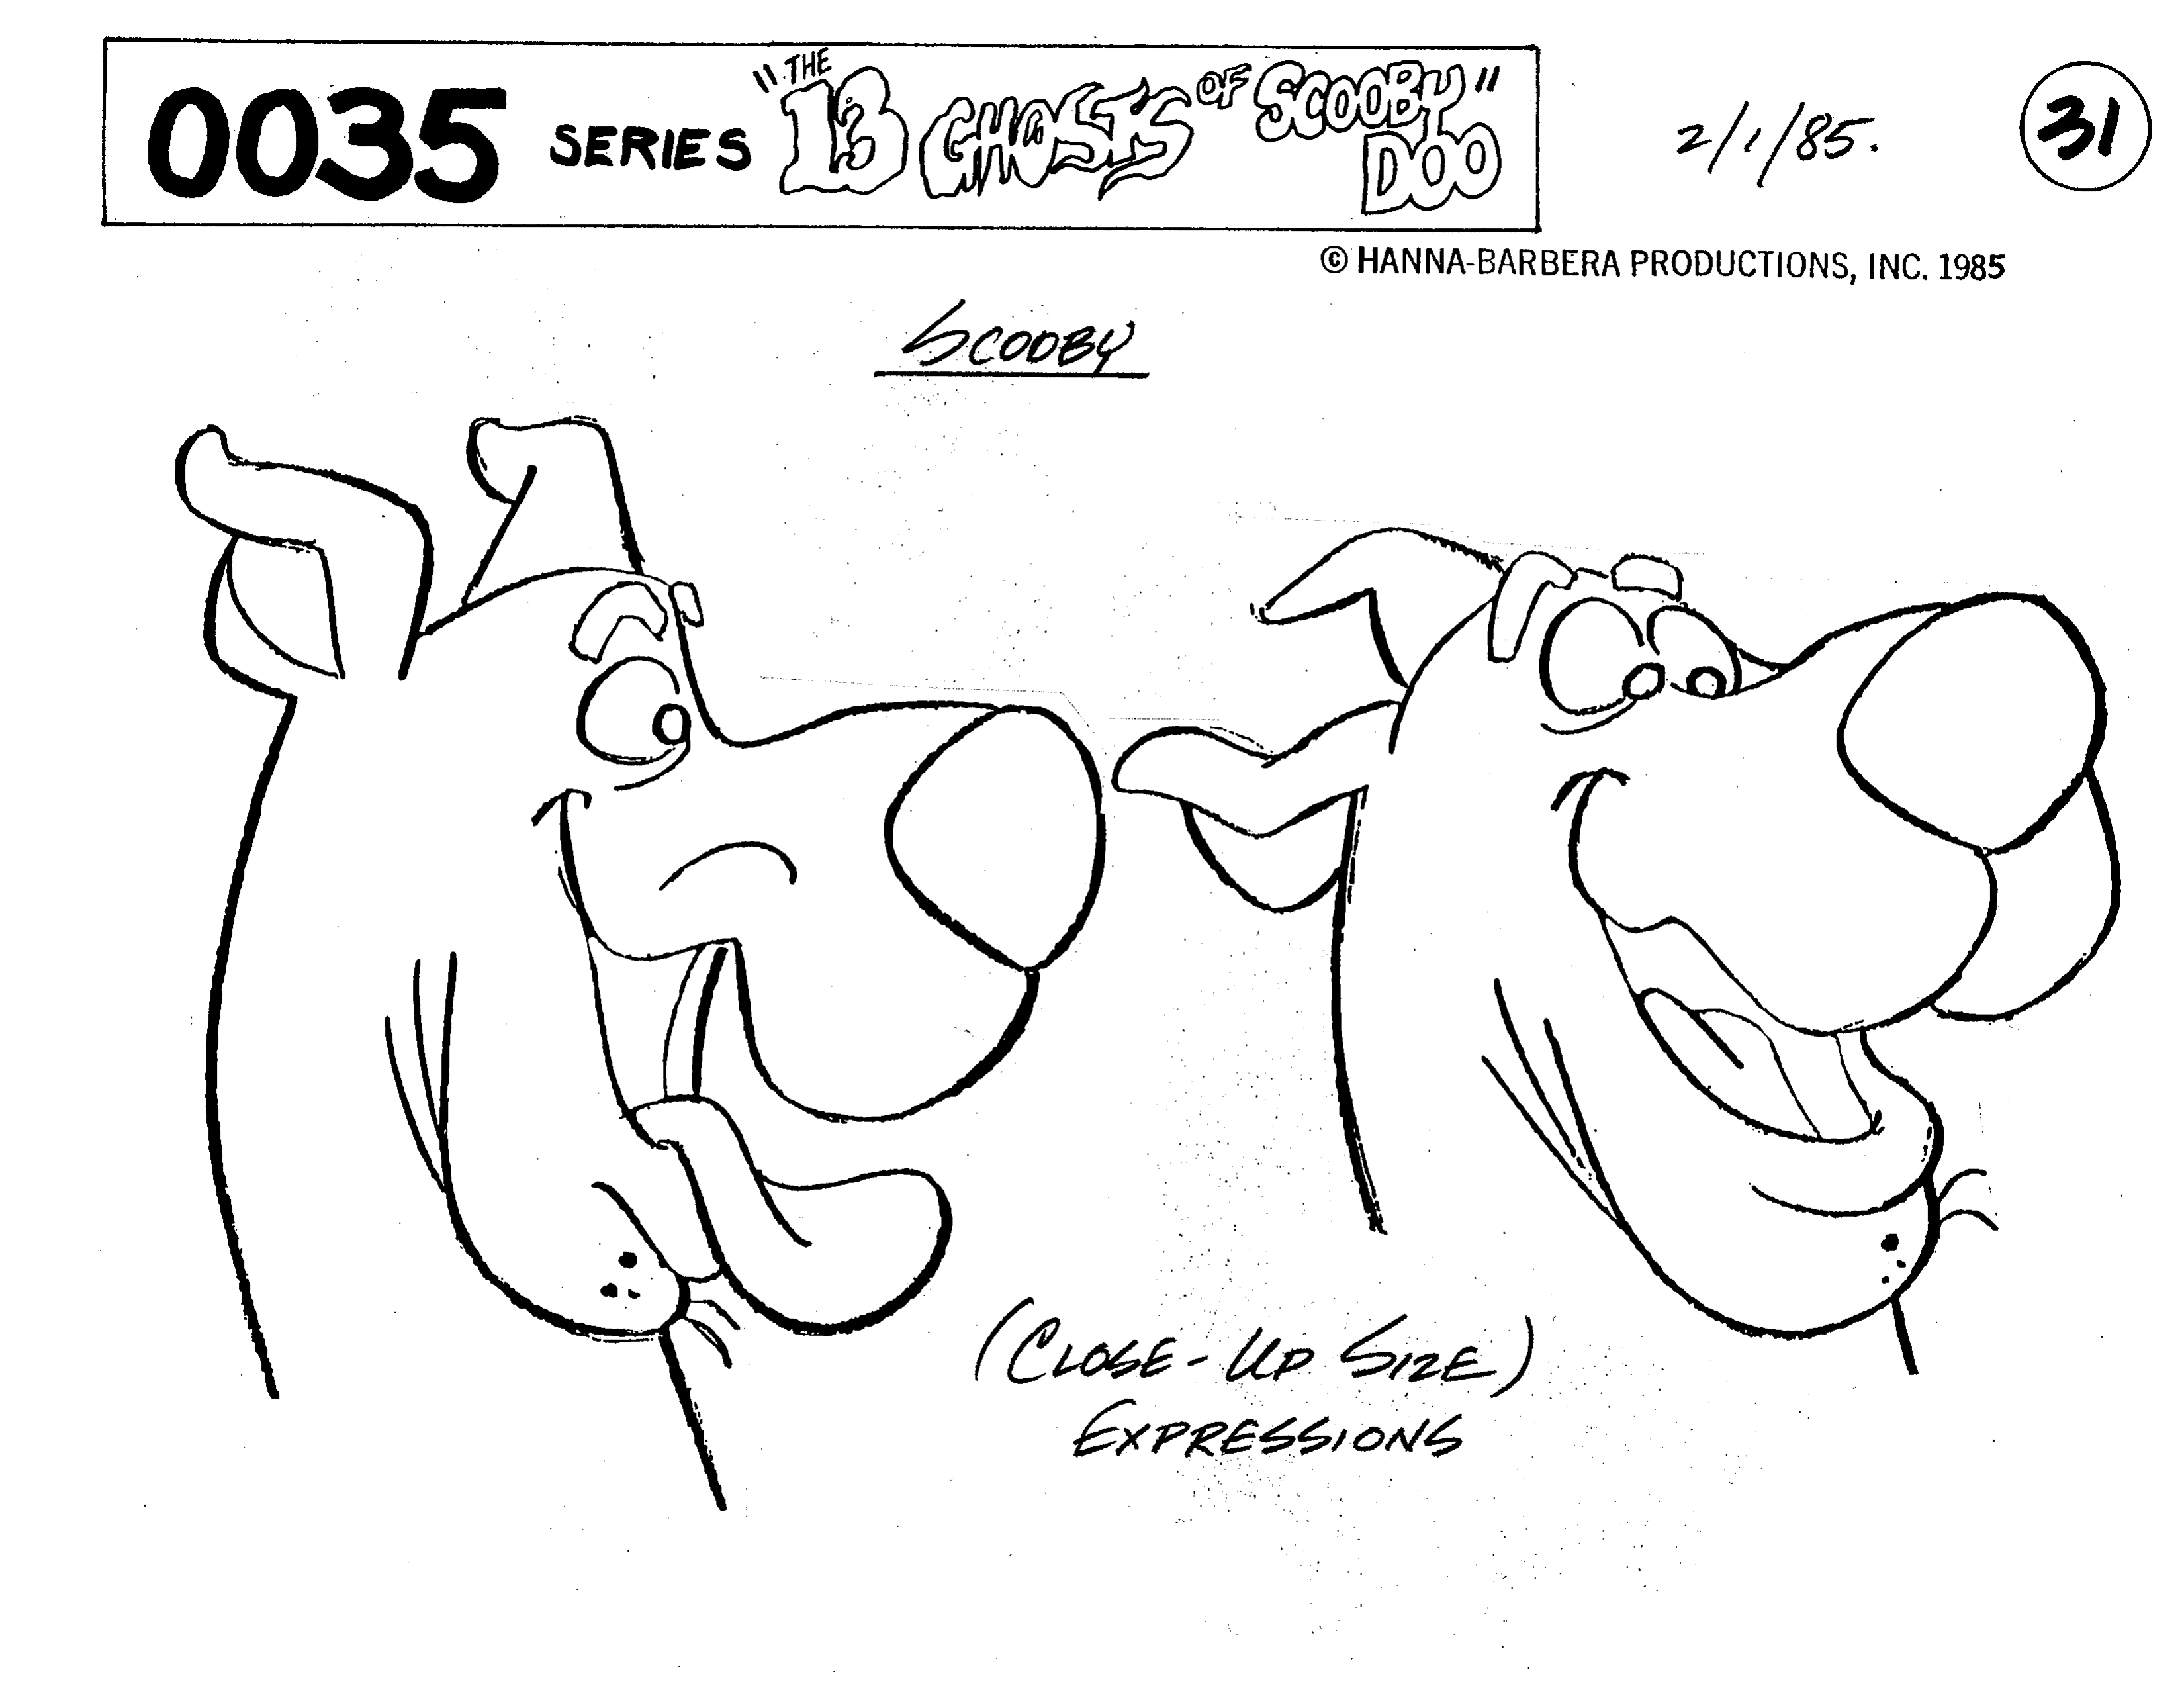 0035 SERIES "THE 13 GHOSTS OF SCOOBY DOO" 2/1/85. 31
© HANNA-BARBERA PRODUCTIONS, INC. 1985
SCOOBY
(CLOSE-UP SIZE)
EXPRESSIONS